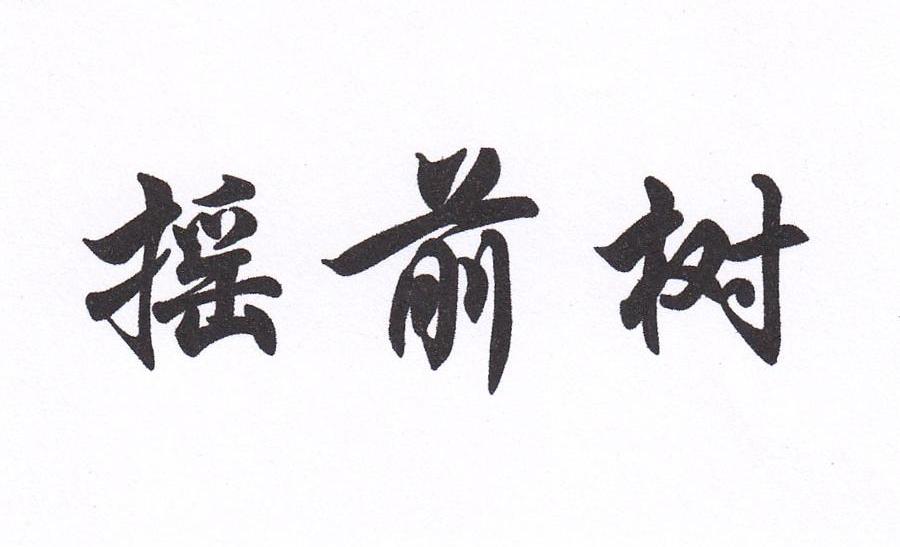 摇前树